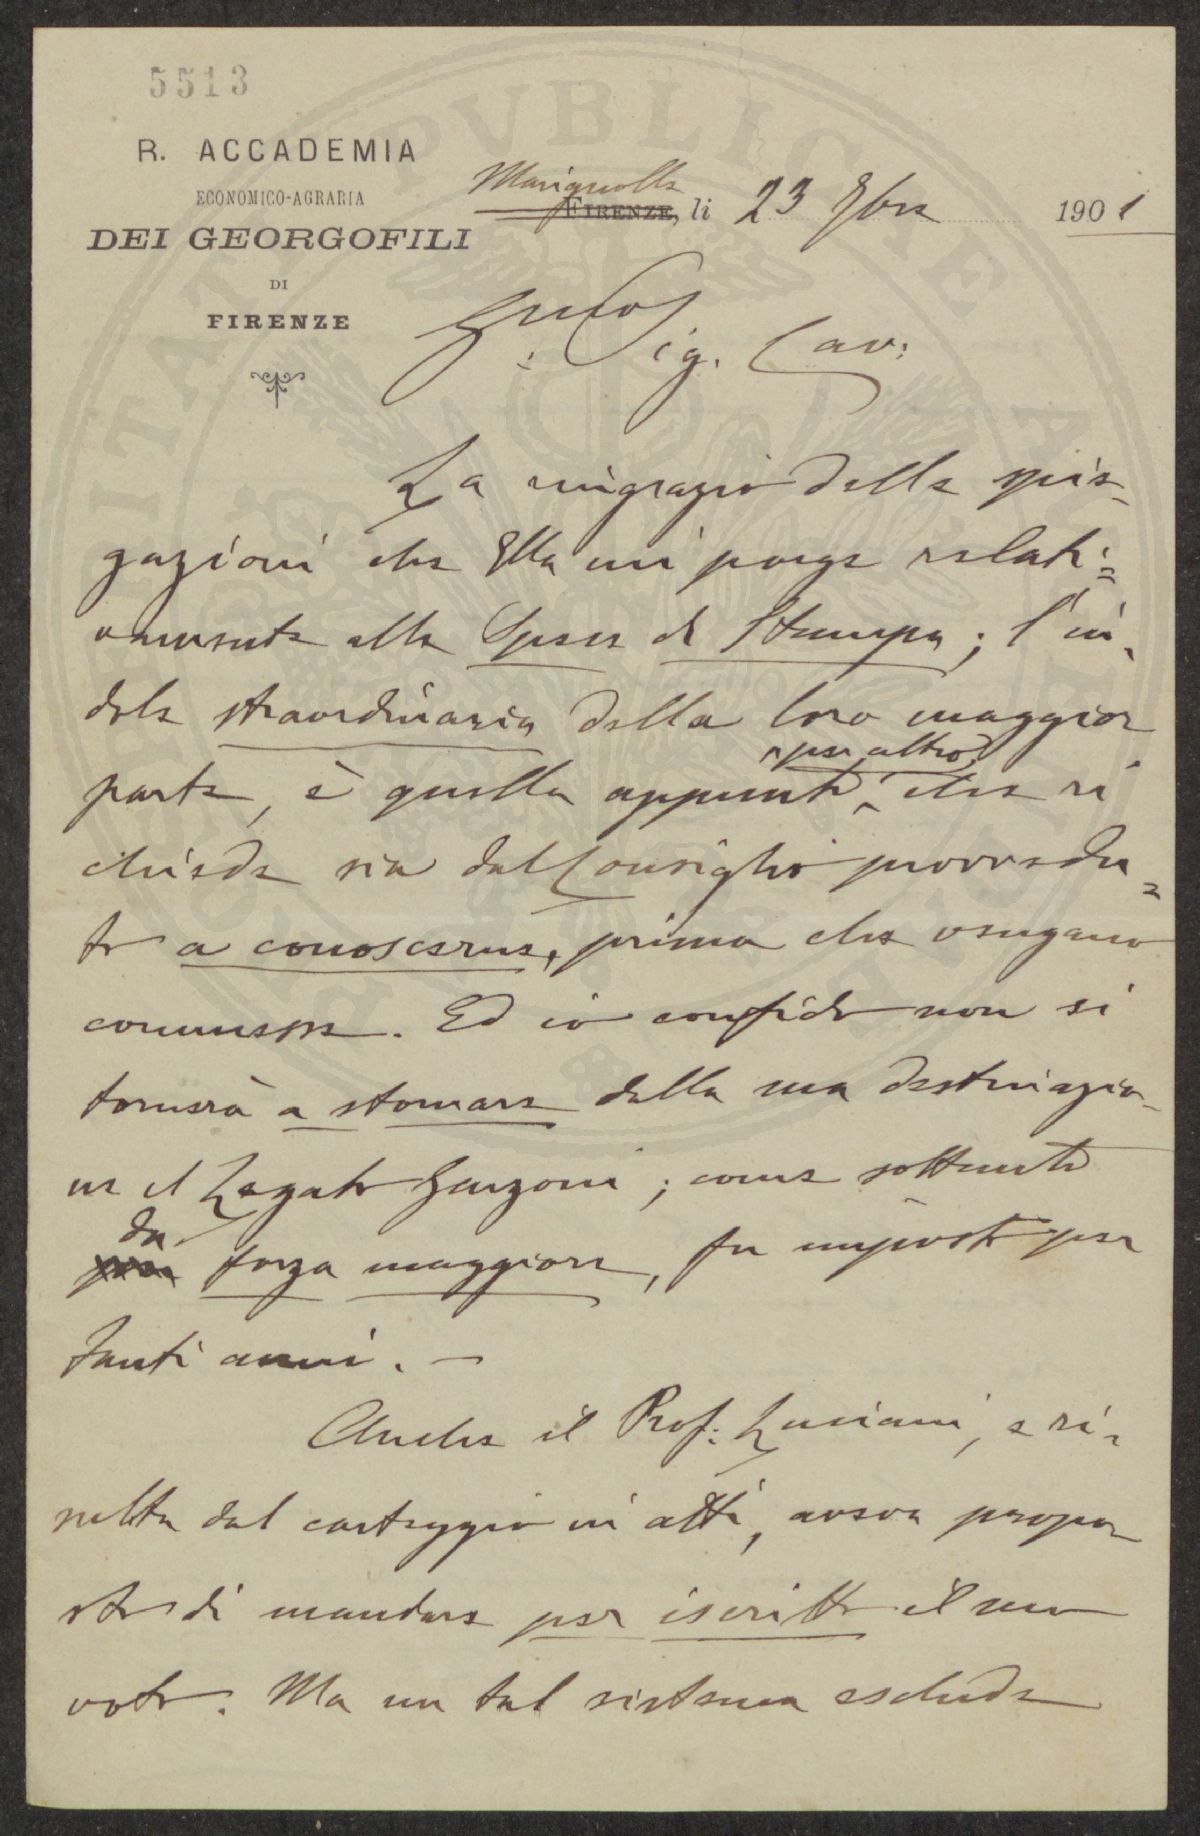 5513
R. ACCADEMIA
ECONOMICO-AGRARIA
DEI GEORGOFILI
DI
FIRENZE
Marignolle
FIRENZE, li 23 9bre 1901
Sig. Cav:
La ringrazio delle spie-
gazioni che Ella mi porge relati=
vamente alle Spese di Stampa; l'in-
dole straordinaria della loro maggior
per altro
parte, è quella appunto, che ri
chiede sia dal Consiglio provvedu=
to a conoscerne, prima che vengano
commesse. Ed io confido non si
tornerà a stornare dalla sua destinazio-
ne il Legato Garzoni; come soltanto
da
forza maggiore, fu imposto per
tanti anni. —
Anche il Prof: Luciani, e ri-
sulta dal carteggio in atti, aveva propo-
sto di mandare per iscritto il suo
voto. Ma un tal sistema esclude